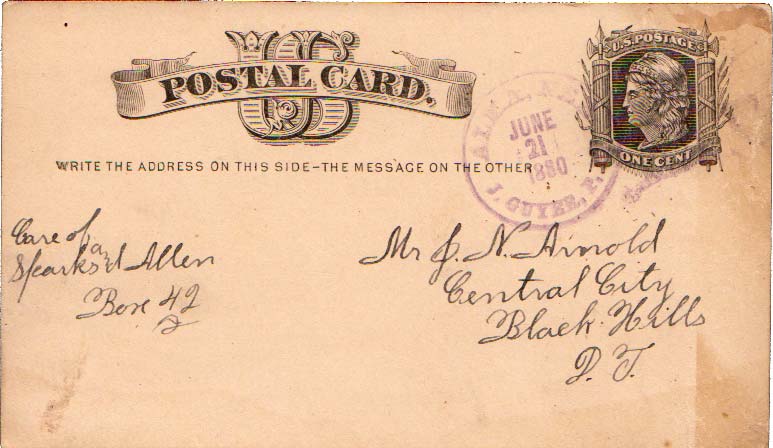 US
POSTAL CARD.
U.S. POSTAGE
ONE CENT
WRITE THE ADDRESS ON THIS SIDE–THE MESSAGE ON THE OTHER
ALMA, NEB
JUNE
21
1880
J. GUYER, P.
Care of
Sparks and Allen
Box 42
Mr J. N. Arnold
Central City
Black Hills
D. T.